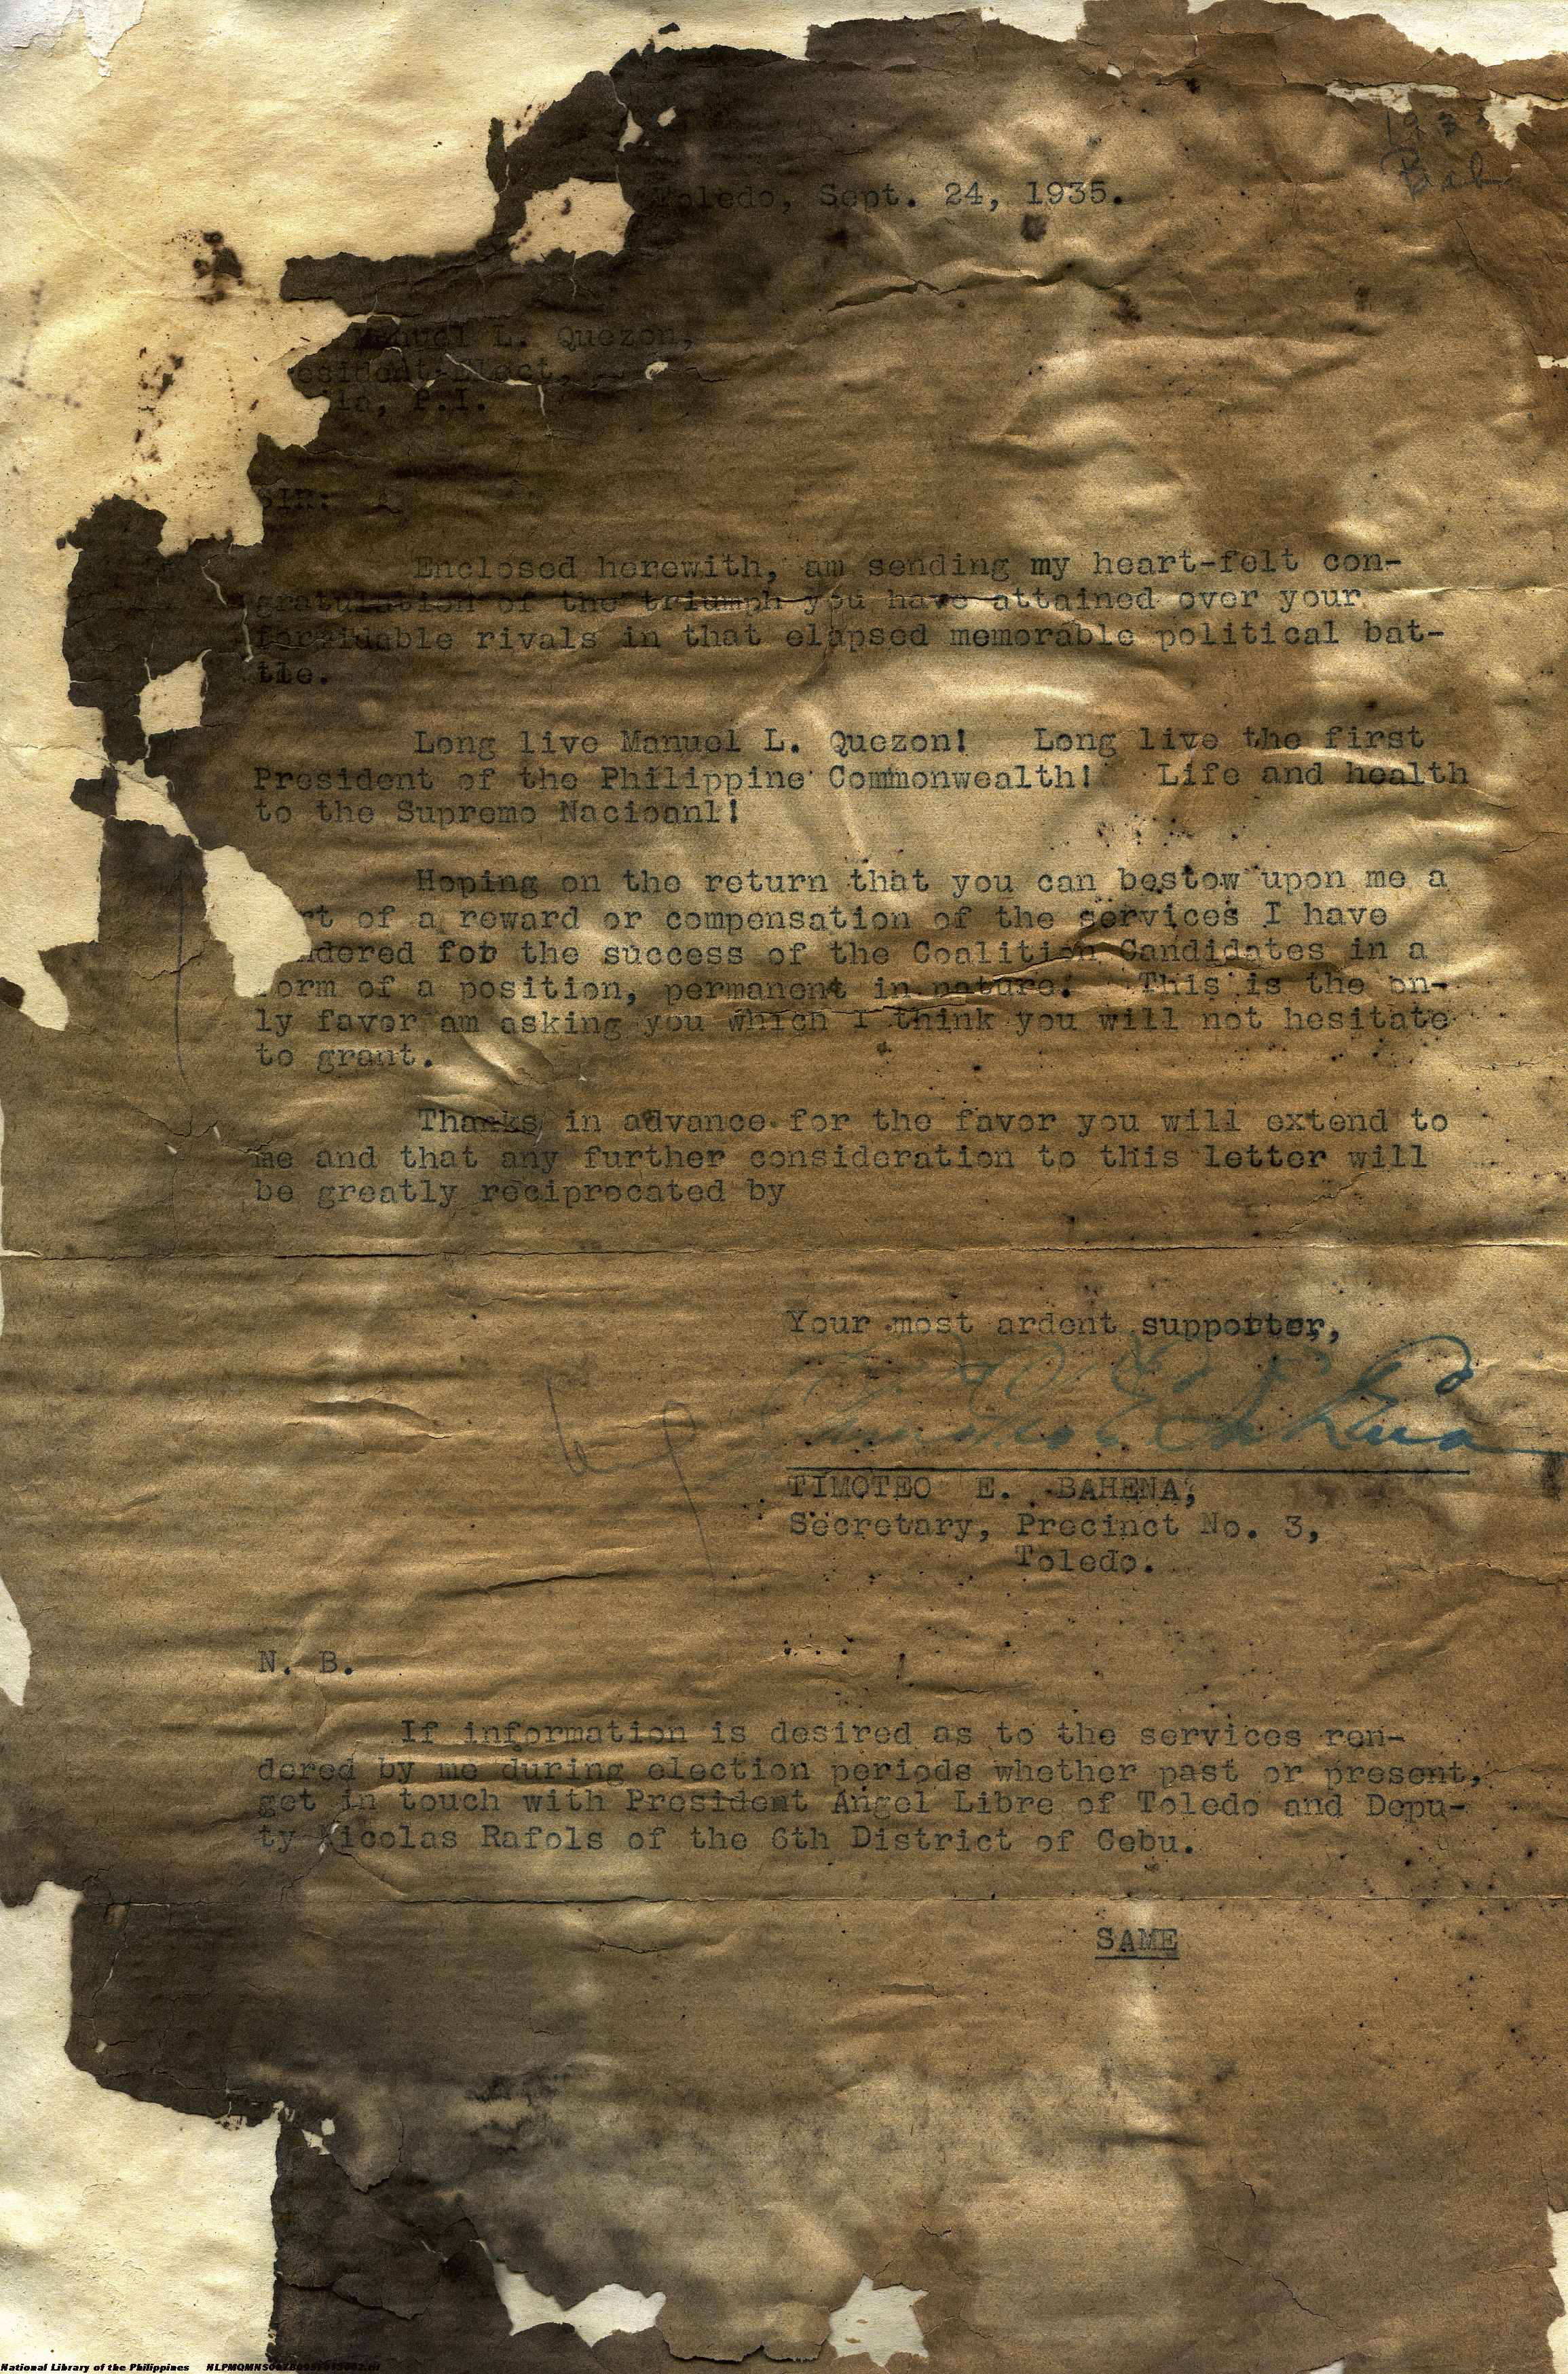 Toledo, Sept. 24, 1935.
Manuel L. Quezon,
esident-Elect,
la, P.I.
SIR:
Enclosed herewith, am sending my heart-felt con-
gratulation of the triumph you have attained over your
formidable rivals in that elapsed memorable political bat-
tle.
Long live Manuel L. Quezon! Long live the first
President of the Philippine Commonwealth! Life and health
to the Supremo Nacioanl!
Hoping on the return that you can bestow upon me a
rt of a reward or compensation of the services I have
dered for the success of the Coalition Candidates in a
form of a position, permanent in nature. This is the on-
ly favor am asking you which I think you will not hesitate
to grant.
Thanks in advance for the favor you will extend to
me and that any further consideration to this letter will
be greatly reciprocated by
Your most ardent supporter,
Timoteo E. Bahena
TIMOTEO E. BAHENA,
Secretary, Precinct No. 3,
Toledo.
N. B.
If information is desired as to the services ren-
dered by me during election periods whether past or present,
get in touch with President Angel Libre of Toledo and Depu-
ty Nicolas Rafols of the 6th District of Cebu.
SAME
National Library of the Philippines